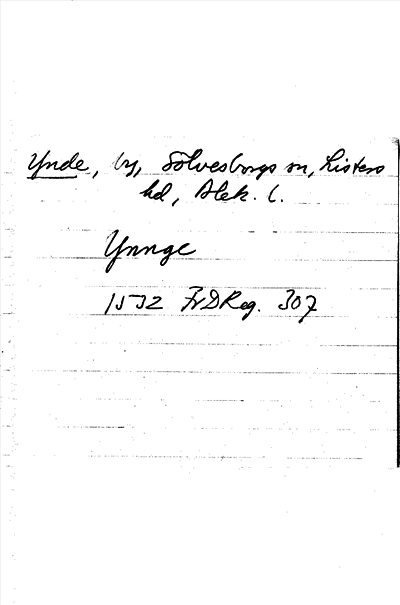 Ynde, by, Sölvesborgs sn, Listers
hd, Blek. l.
Ynnge
1532 FrDReg. 307